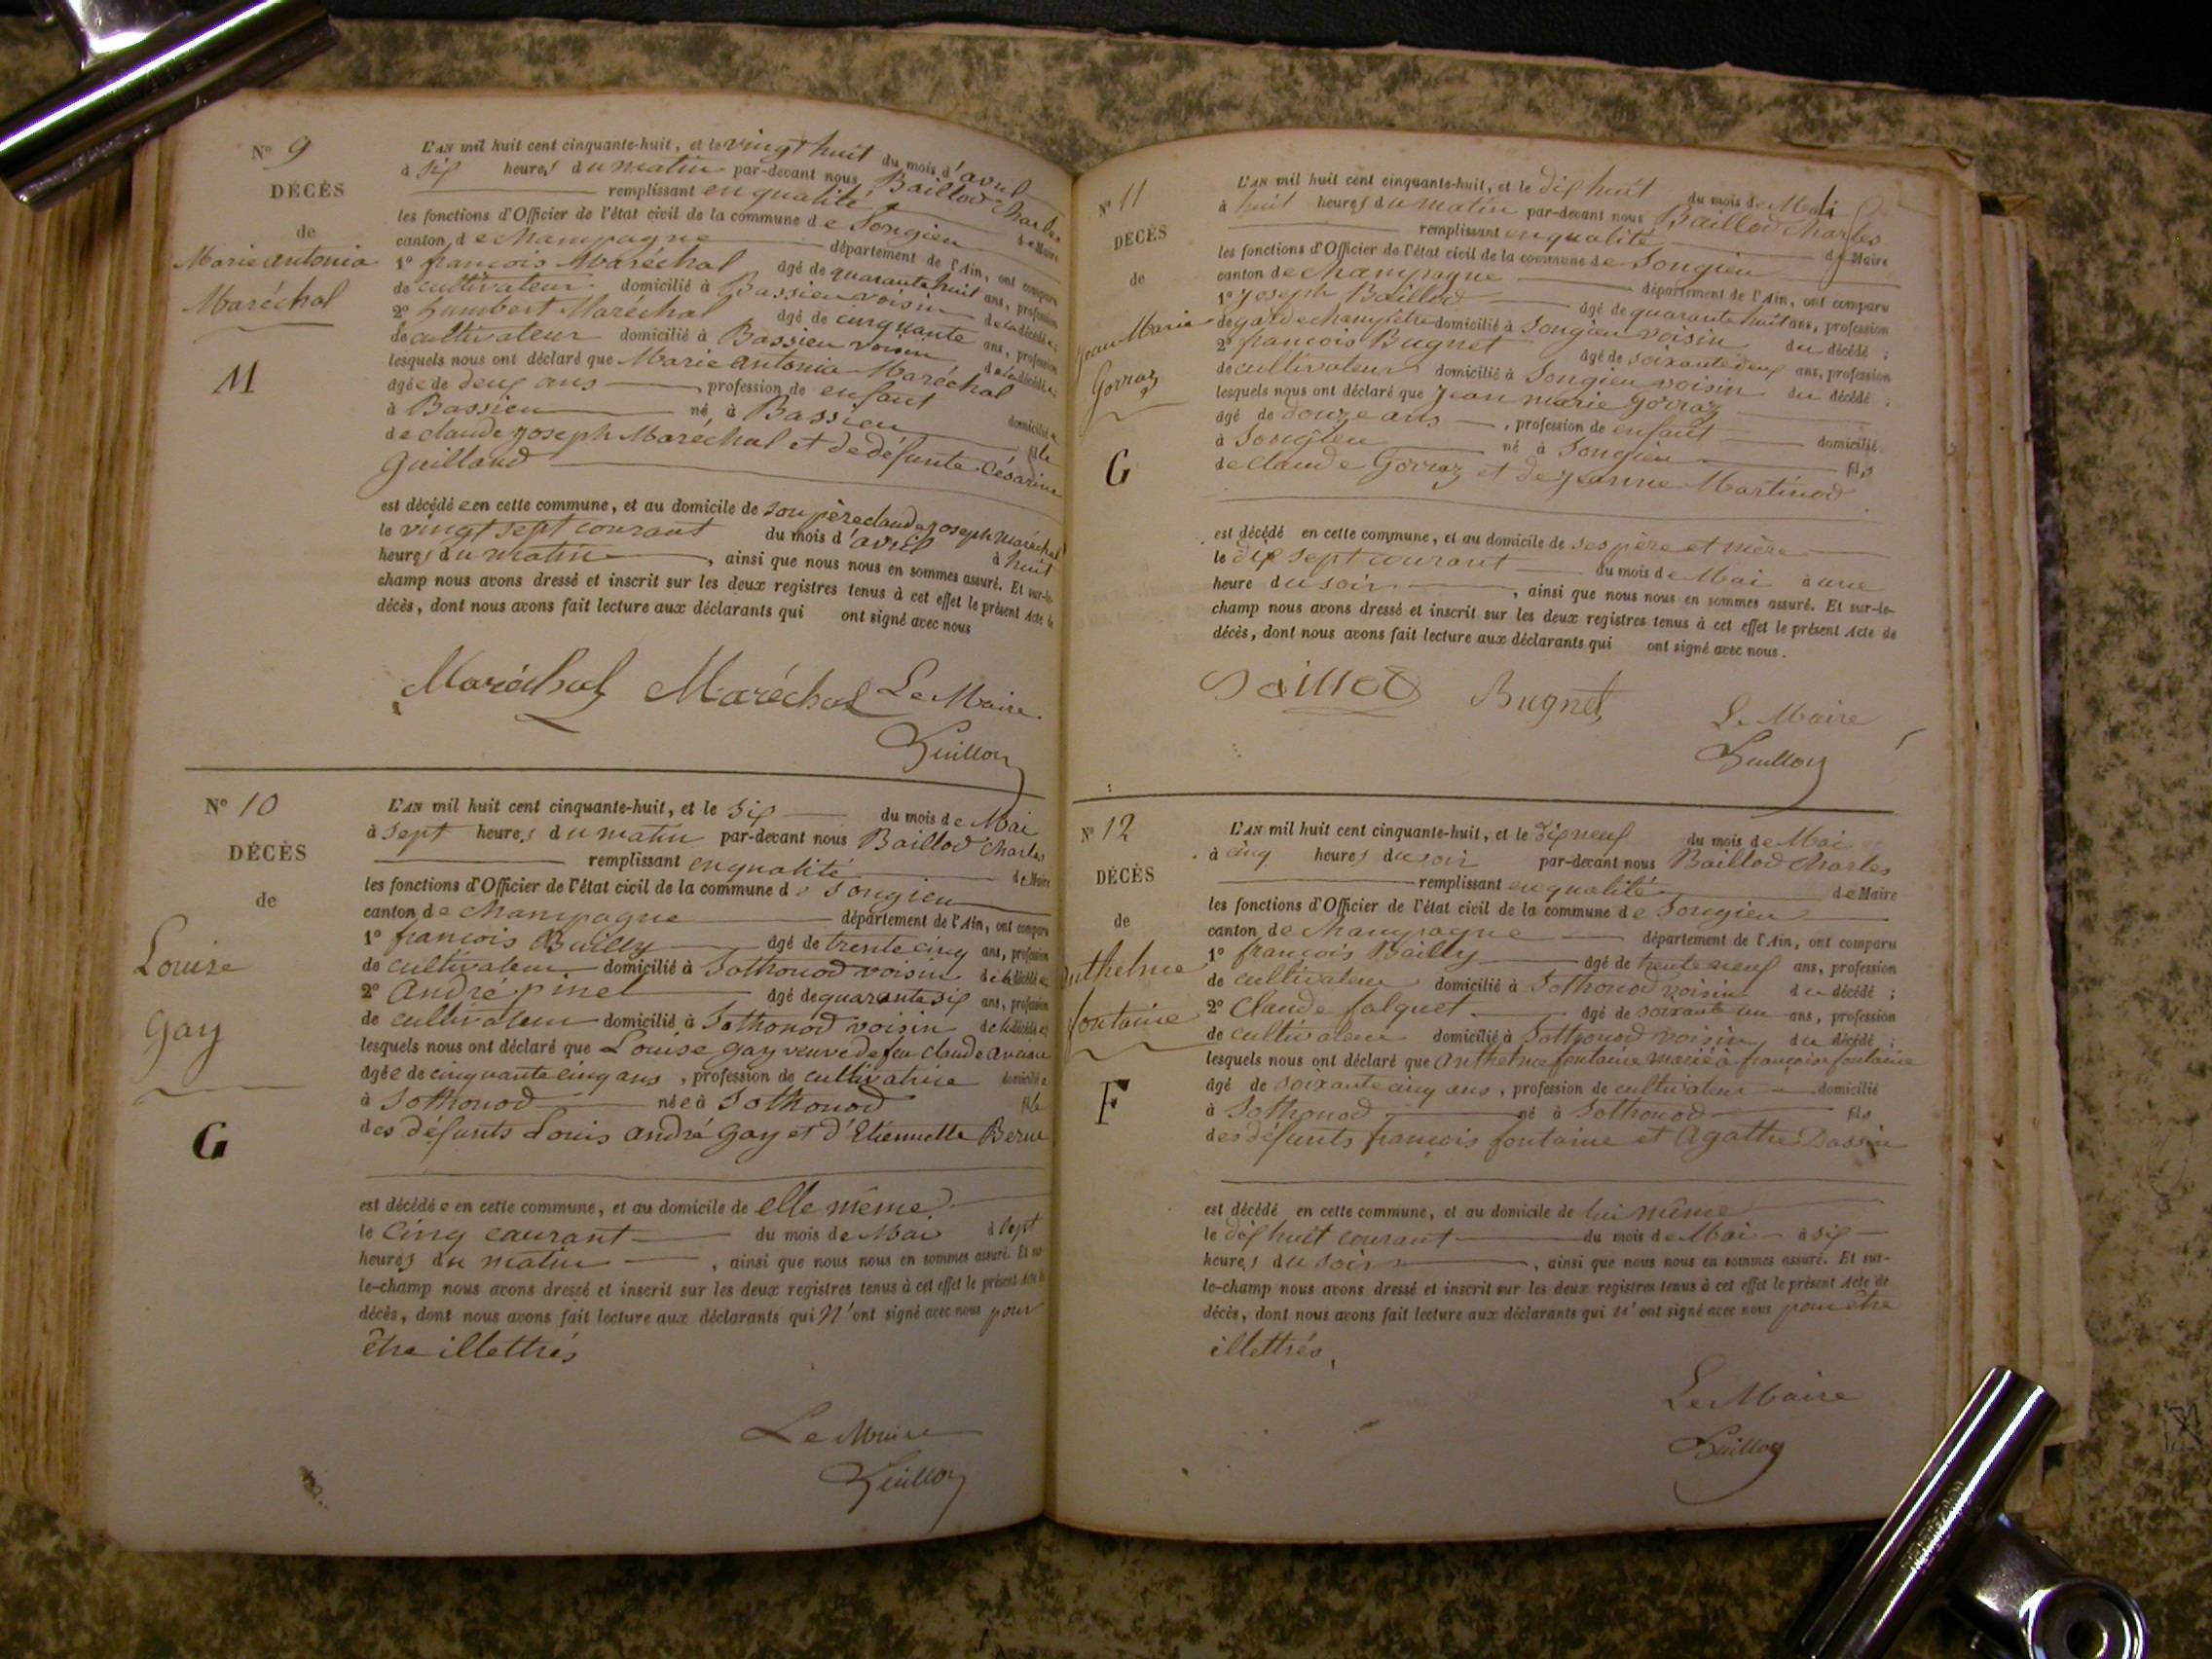 Nº 9
DÉCÈS
de
Marie antonia
Maréchal
M
L'AN mil huit cent cinquante-huit, et le vingt huit du mois d'avril
à six heures du matin par-devant nous Baillod Charles
remplissant en qualité de Maire
les fonctions d'Officier de l'état civil de la commune de Songieu
canton de champagne département de l'Ain, ont comparu
1º françois Maréchal âgé de quarante huit ans, profession
de cultivateur domicilié à Bassieu voisin de la décédée
2º humbert Maréchal âgé de cinquante ans, profession
de cultivateur domicilié à Bassieu voisin de la décédée
lesquels nous ont déclaré que Marie antonia Maréchal
âgée de deux ans , profession de enfant domiciliée
à Bassieu né à Bassieu fille
de claude joseph Maréchal et de défunte Césarine
Guilland
est décédée en cette commune, et au domicile de son père claude joseph Maréchal
le vingt sept courant du mois d'avril à huit
heures du matin , ainsi que nous nous en sommes assuré. Et sur-le-
champ nous avons dressé et inscrit sur les deux registres tenus à cet effet le présent Acte de
décès, dont nous avons fait lecture aux déclarants qui ont signé avec nous
Maréchal Maréchal Le Maire
Nº 10
DÉCÈS
de
Louise
Gay
G
L'AN mil huit cent cinquante-huit, et le six du mois de Mai
à sept heures du matin par-devant nous Baillod Charles
remplissant en qualité de Maire
les fonctions d'Officier de l'état civil de la commune de Songieu
canton de champagne département de l'Ain, ont comparu
1º françois Bailly âgé de trente cinq ans, profession
de cultivateur domicilié à Sothonod voisin de la décédée
2º André pinel âgé de quarante six ans, profession
de cultivateur domicilié à Sothonod voisin de la décédée
lesquels nous ont déclaré que Louise gay veuve de feu claude
âgée de cinquante cinq ans , profession de cultivatrice domiciliée
à Sothonod née à Sothonod fille
des défunts Louis andré gay et d'Etiennette Berne
est décédée en cette commune, et au domicile de elle même
le cinq courant du mois de Mai à sept
heures du matin , ainsi que nous nous en sommes assuré. Et sur
le-champ nous avons dressé et inscrit sur les deux registres tenus à cet effet le présent Acte de
décès, dont nous avons fait lecture aux déclarants qui n'ont signé avec nous pour
être illettrés
Le Maire
Nº 11
DÉCÈS
de
Jean Marie
Gorraz
G
L'AN mil huit cent cinquante-huit, et le dix huit du mois de Mai
à huit heures du matin par-devant nous Baillod Charles
remplissant en qualité de Maire
les fonctions d'Officier de l'état civil de la commune de Songieu
canton de champagne département de l'Ain, ont comparu
1º joseph Baillod âgé de quarante huit ans, profession
de garde champêtre domicilié à Songieu voisin du décédé ;
2º françois Bugnet âgé de soixante deux ans, profession
de cultivateur domicilié à Songieu voisin du décédé ;
lesquels nous ont déclaré que Jean marie gorraz
âgé de douze ans , profession de enfant domicilié
à Songieu né à Songieu fils
de claude Gorraz et de jeanne Martinod
est décédé en cette commune, et au domicile de ses père et mère
le dix sept courant du mois de Mai à une
heure du soir , ainsi que nous nous en sommes assuré. Et sur-le-
champ nous avons dressé et inscrit sur les deux registres tenus à cet effet le présent Acte de
décès, dont nous avons fait lecture aux déclarants qui ont signé avec nous.
Baillod Bugnet Le Maire
Nº 12
DÉCÈS
de
Anthelme
fontaine
F
L'AN mil huit cent cinquante-huit, et le dix neuf du mois de Mai
à cinq heures du soir par-devant nous Baillod Charles
remplissant en qualité de Maire
les fonctions d'Officier de l'état civil de la commune de Songieu
canton de champagne département de l'Ain, ont comparu
1º françois Bailly âgé de trente neuf ans, profession
de cultivateur domicilié à Sothonod voisin du décédé ;
2º Claude falquet âgé de soixante un ans, profession
de cultivateur domicilié à Sothonod voisin du décédé ;
lesquels nous ont déclaré que anthelme fontaine marié à françoise fontaine
âgé de soixante cinq ans , profession de cultivateur domicilié
à Sothonod né à Sothonod fils
des défunts françois fontaine et Agathe
est décédé en cette commune, et au domicile de lui même
le dix huit courant du mois de Mai à six
heures du soir , ainsi que nous nous en sommes assuré. Et sur-
le-champ nous avons dressé et inscrit sur les deux registres tenus à cet effet le présent Acte de
décès, dont nous avons fait lecture aux déclarants qui n'ont signé avec nous pour être
illettrés.
Le Maire